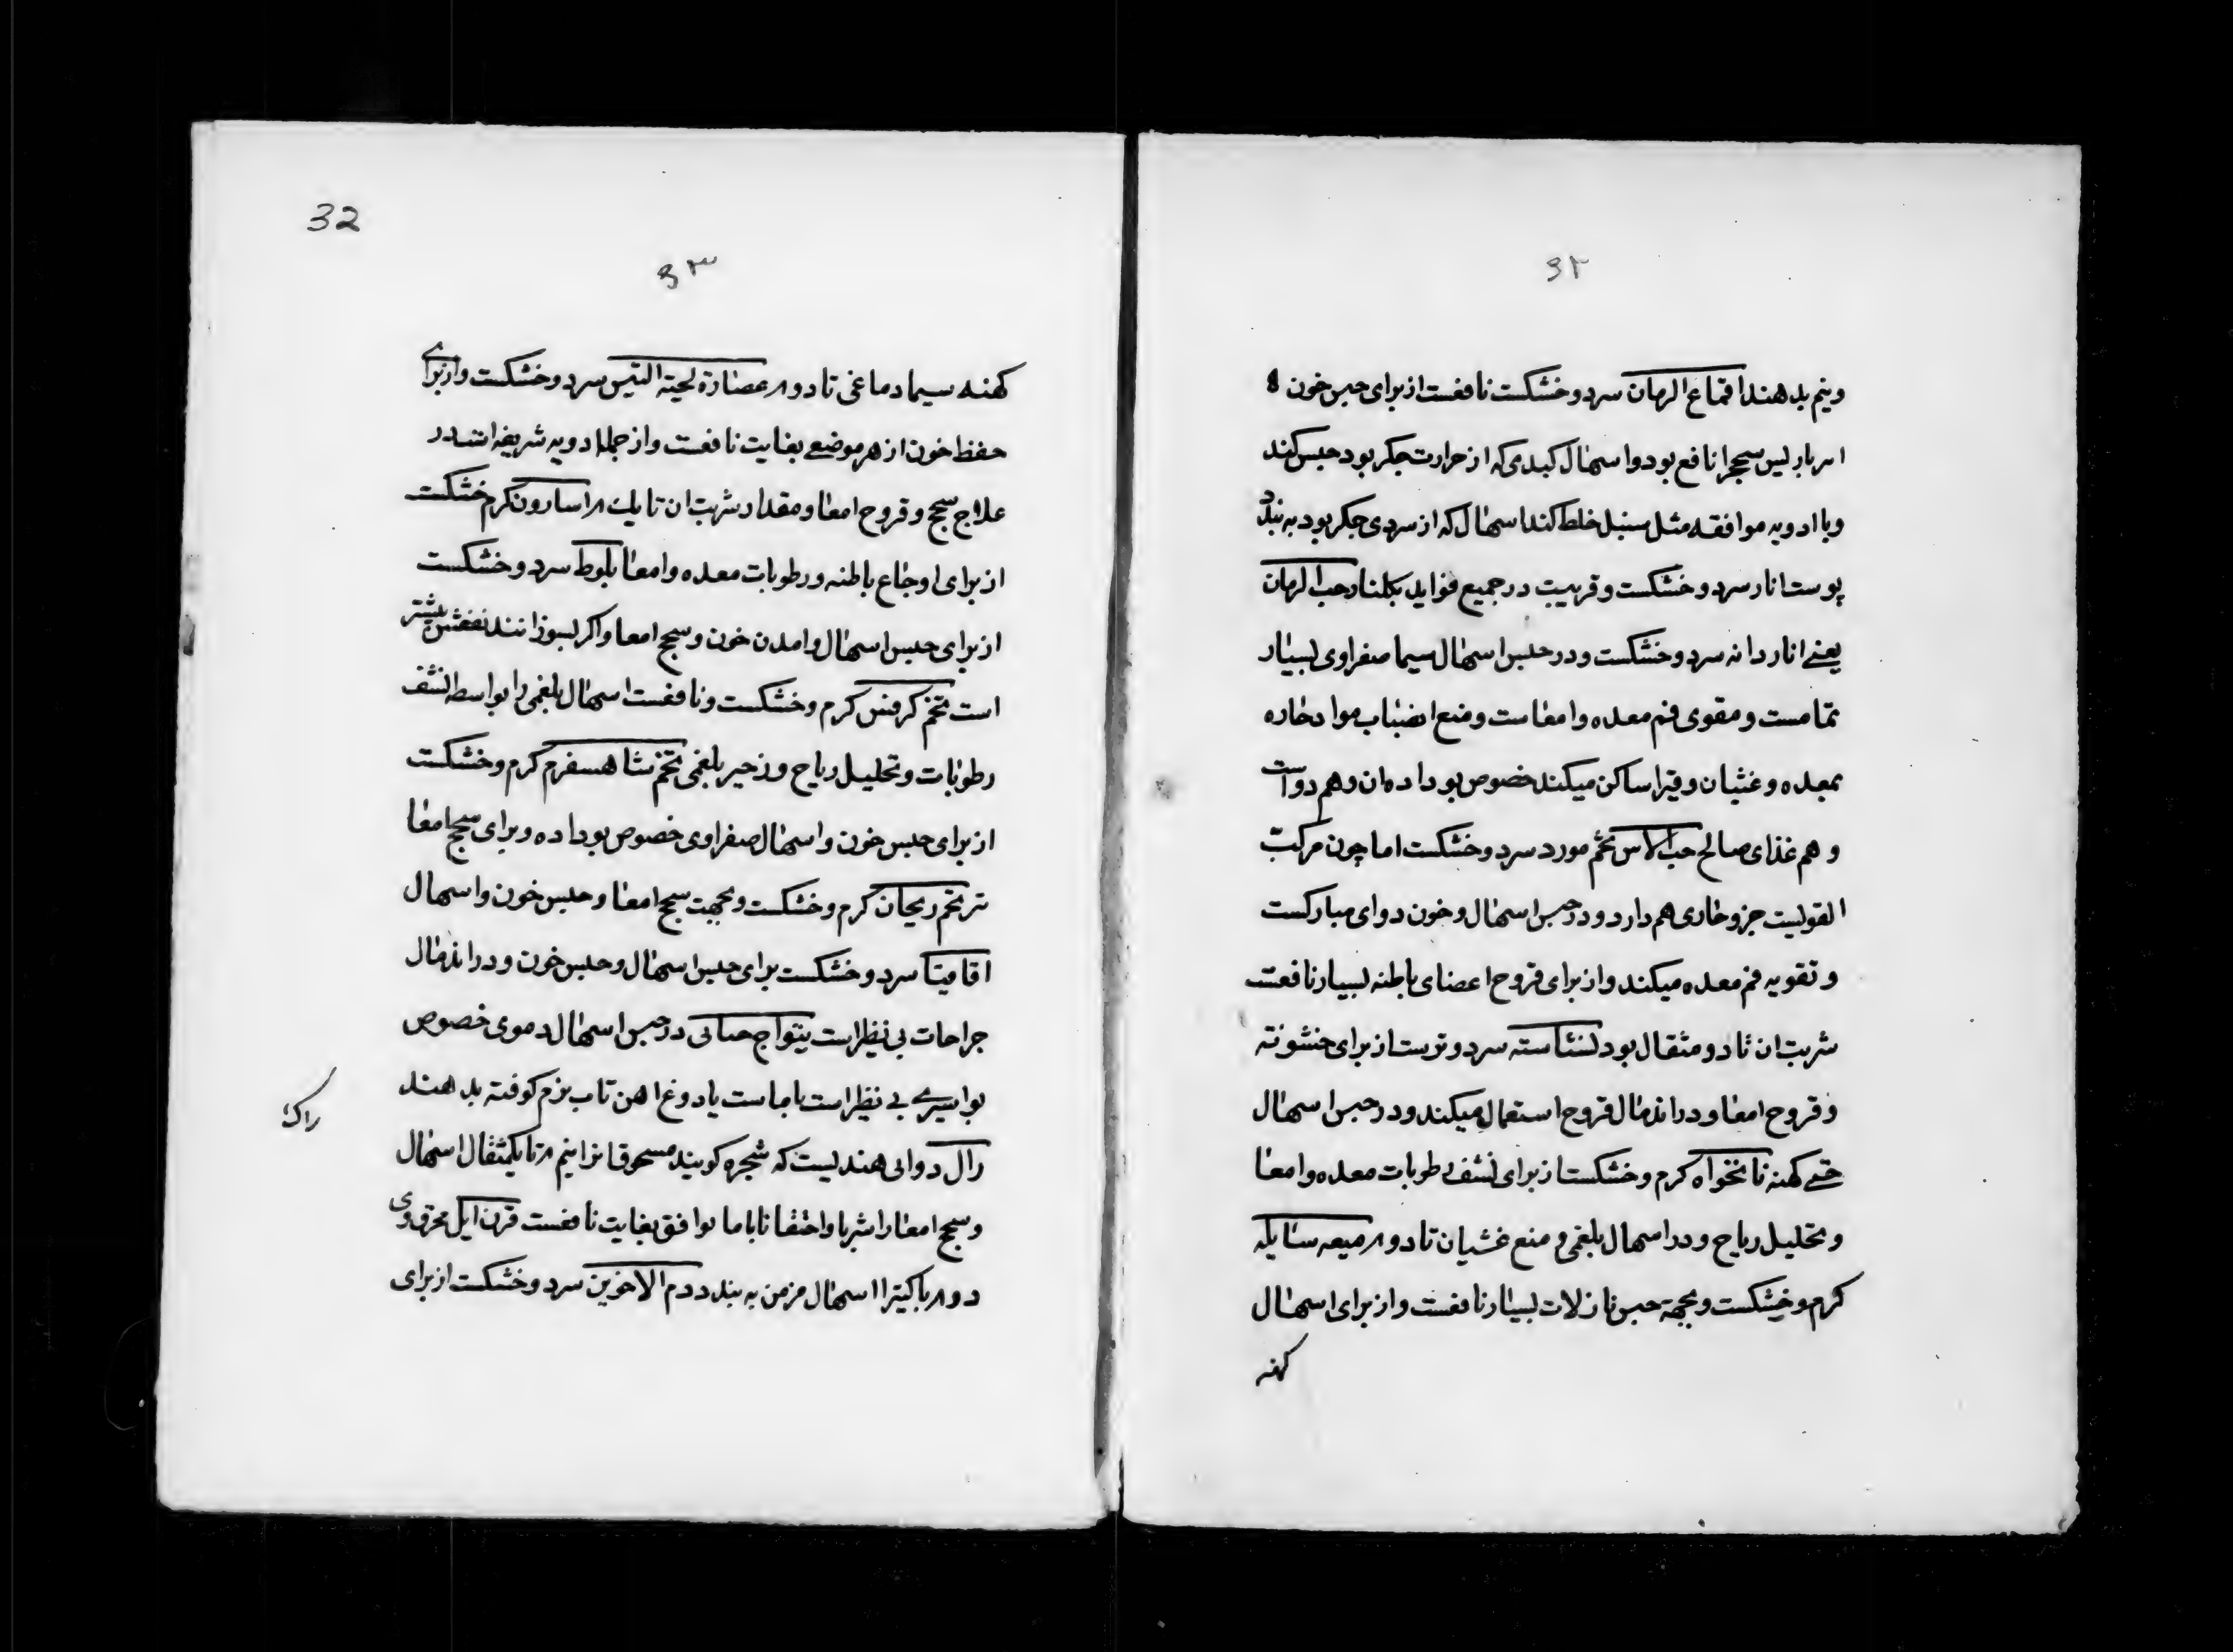 ۶۲
ونیم بدهند اقماع الرمان سرد و خشکست نافعست از برای حبس خون
امیرباریس سحج را نافع بود و اسهال کبدی که از حرارت جکر بود حبس کند
و با ادویه موافقه مثل سنبل خلط کند اسهال که از سردی جکر بود به بندد
پوست انار سرد و خشکست و قریبست در جمیع فواید بکلنار حب الرمان
یعنے انار دانه سرد و خشکست و در حبس اسهال سیما صفراوی بسیار
تمامست و مقوی فم معده و امعاست و منع انصباب مواد حاره
بمعده و غثیان و قی را ساکن میکند خصوص بو داده ان و هم دواست
و هم غذای صالح حب الاس تخم مورد سرد و خشکست اما چون مرکب
القویست جزو حاری هم دارد و در حبس اسهال و خون دوای مبارکست
و تقویه فم معده میکند و از برای قروح اعضای باطنه بسیار نافعست
شربت ان تا دو مثقال بود نشاسته سرد و ترست از برای خشونة
و قروح امعا و در اندمال قروح استعمال میکند و در حبس اسهال
حتے کهنه نانخواه کرم و خشکست از برای نشف رطوبات معده و امعا
و تحلیل ریاح و در اسهال بلغمی و منع غشیان تا دو م میعه سایله
کرم و خشکست و بجهة حبس نازلات بسیار نافعست و از برای اسهال
کهنه
32
۶۳
کهنه سیما دماغی تا دو م عصارة لحیة التیس سرد و خشکست و از برای
حفظ خون از هر موضعے بغایت نافعست و از جمله ادویه شریفه است در
علاج سحج و قروح امعا و مقدار شربت ان تا یک م اسارون کرم خشکست
از برای اوجاع باطنه و رطوبات معده و امعا بلوط سرد و خشکست
از برای حبس اسهال و امدن خون و سحج امعا و اکر بسوزانند نفعش بیشتر
است تخم کرفس کرم و خشکست و نافعست اسهال بلغمی را بواسطه نشف
رطوبات و تحلیل ریاح و زحیر بلغمی تخم شاهسفرم کرم و خشکست
از برای حبس خون و اسهال صفراوی خصوص بو داده و برای سحج امعا
تر تخم ریحان کرم و خشکست و بجهت سحج امعا و حبس خون و اسهال
اقاقیا سرد و خشکست برای حبس اسهال و حبس خون و در اندمال
جراحات بی نظیر است در حبس اسهال دموی خصوص
بواسیرے بے نظیر است با ماست یا دوغ اهن تاب نرم کوفته بدهند
رال دوایی هندیست که شجره کویند مسحوقا نرا نیم م تا یکمثقال اسهال
و سحج امعا را شربا و احتقانا با ما یوافق بغایت نافعست قرن ایل محرق وی
دو م با کتیرا اسهال مزمن به بندد دم الاخوین سرد و خشکست از برای
رال